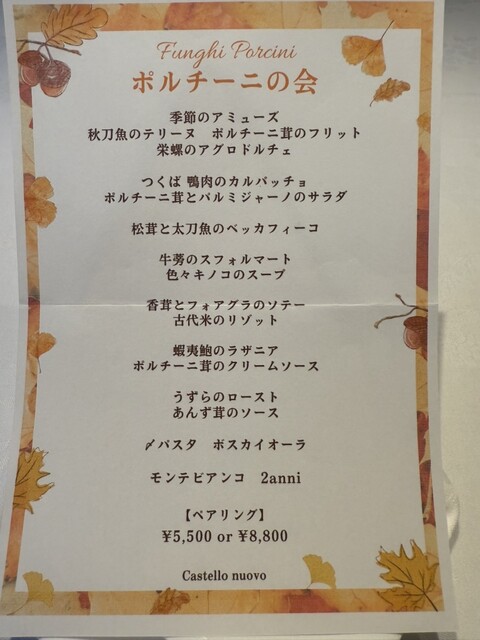 Funghi Porcini
ポルチーニの会
季節のアミューズ
秋刀魚のテリーヌ　ポルチーニ茸のフリット
栄螺のアグロドルチェ
つくば 鴨肉のカルパッチョ
ポルチーニ茸とパルミジャーノのサラダ
松茸と太刀魚のベッカフィーコ
牛蒡のスフォルマート
色々キノコのスープ
香茸とフォアグラのソテー
古代米のリゾット
蝦夷鮑のラザニア
ポルチーニ茸のクリームソース
うずらのロースト
あんず茸のソース
〆パスタ　ボスカイオーラ
モンテビアンコ　2anni
【ペアリング】
¥5,500 or ¥8,800
Castello nuovo